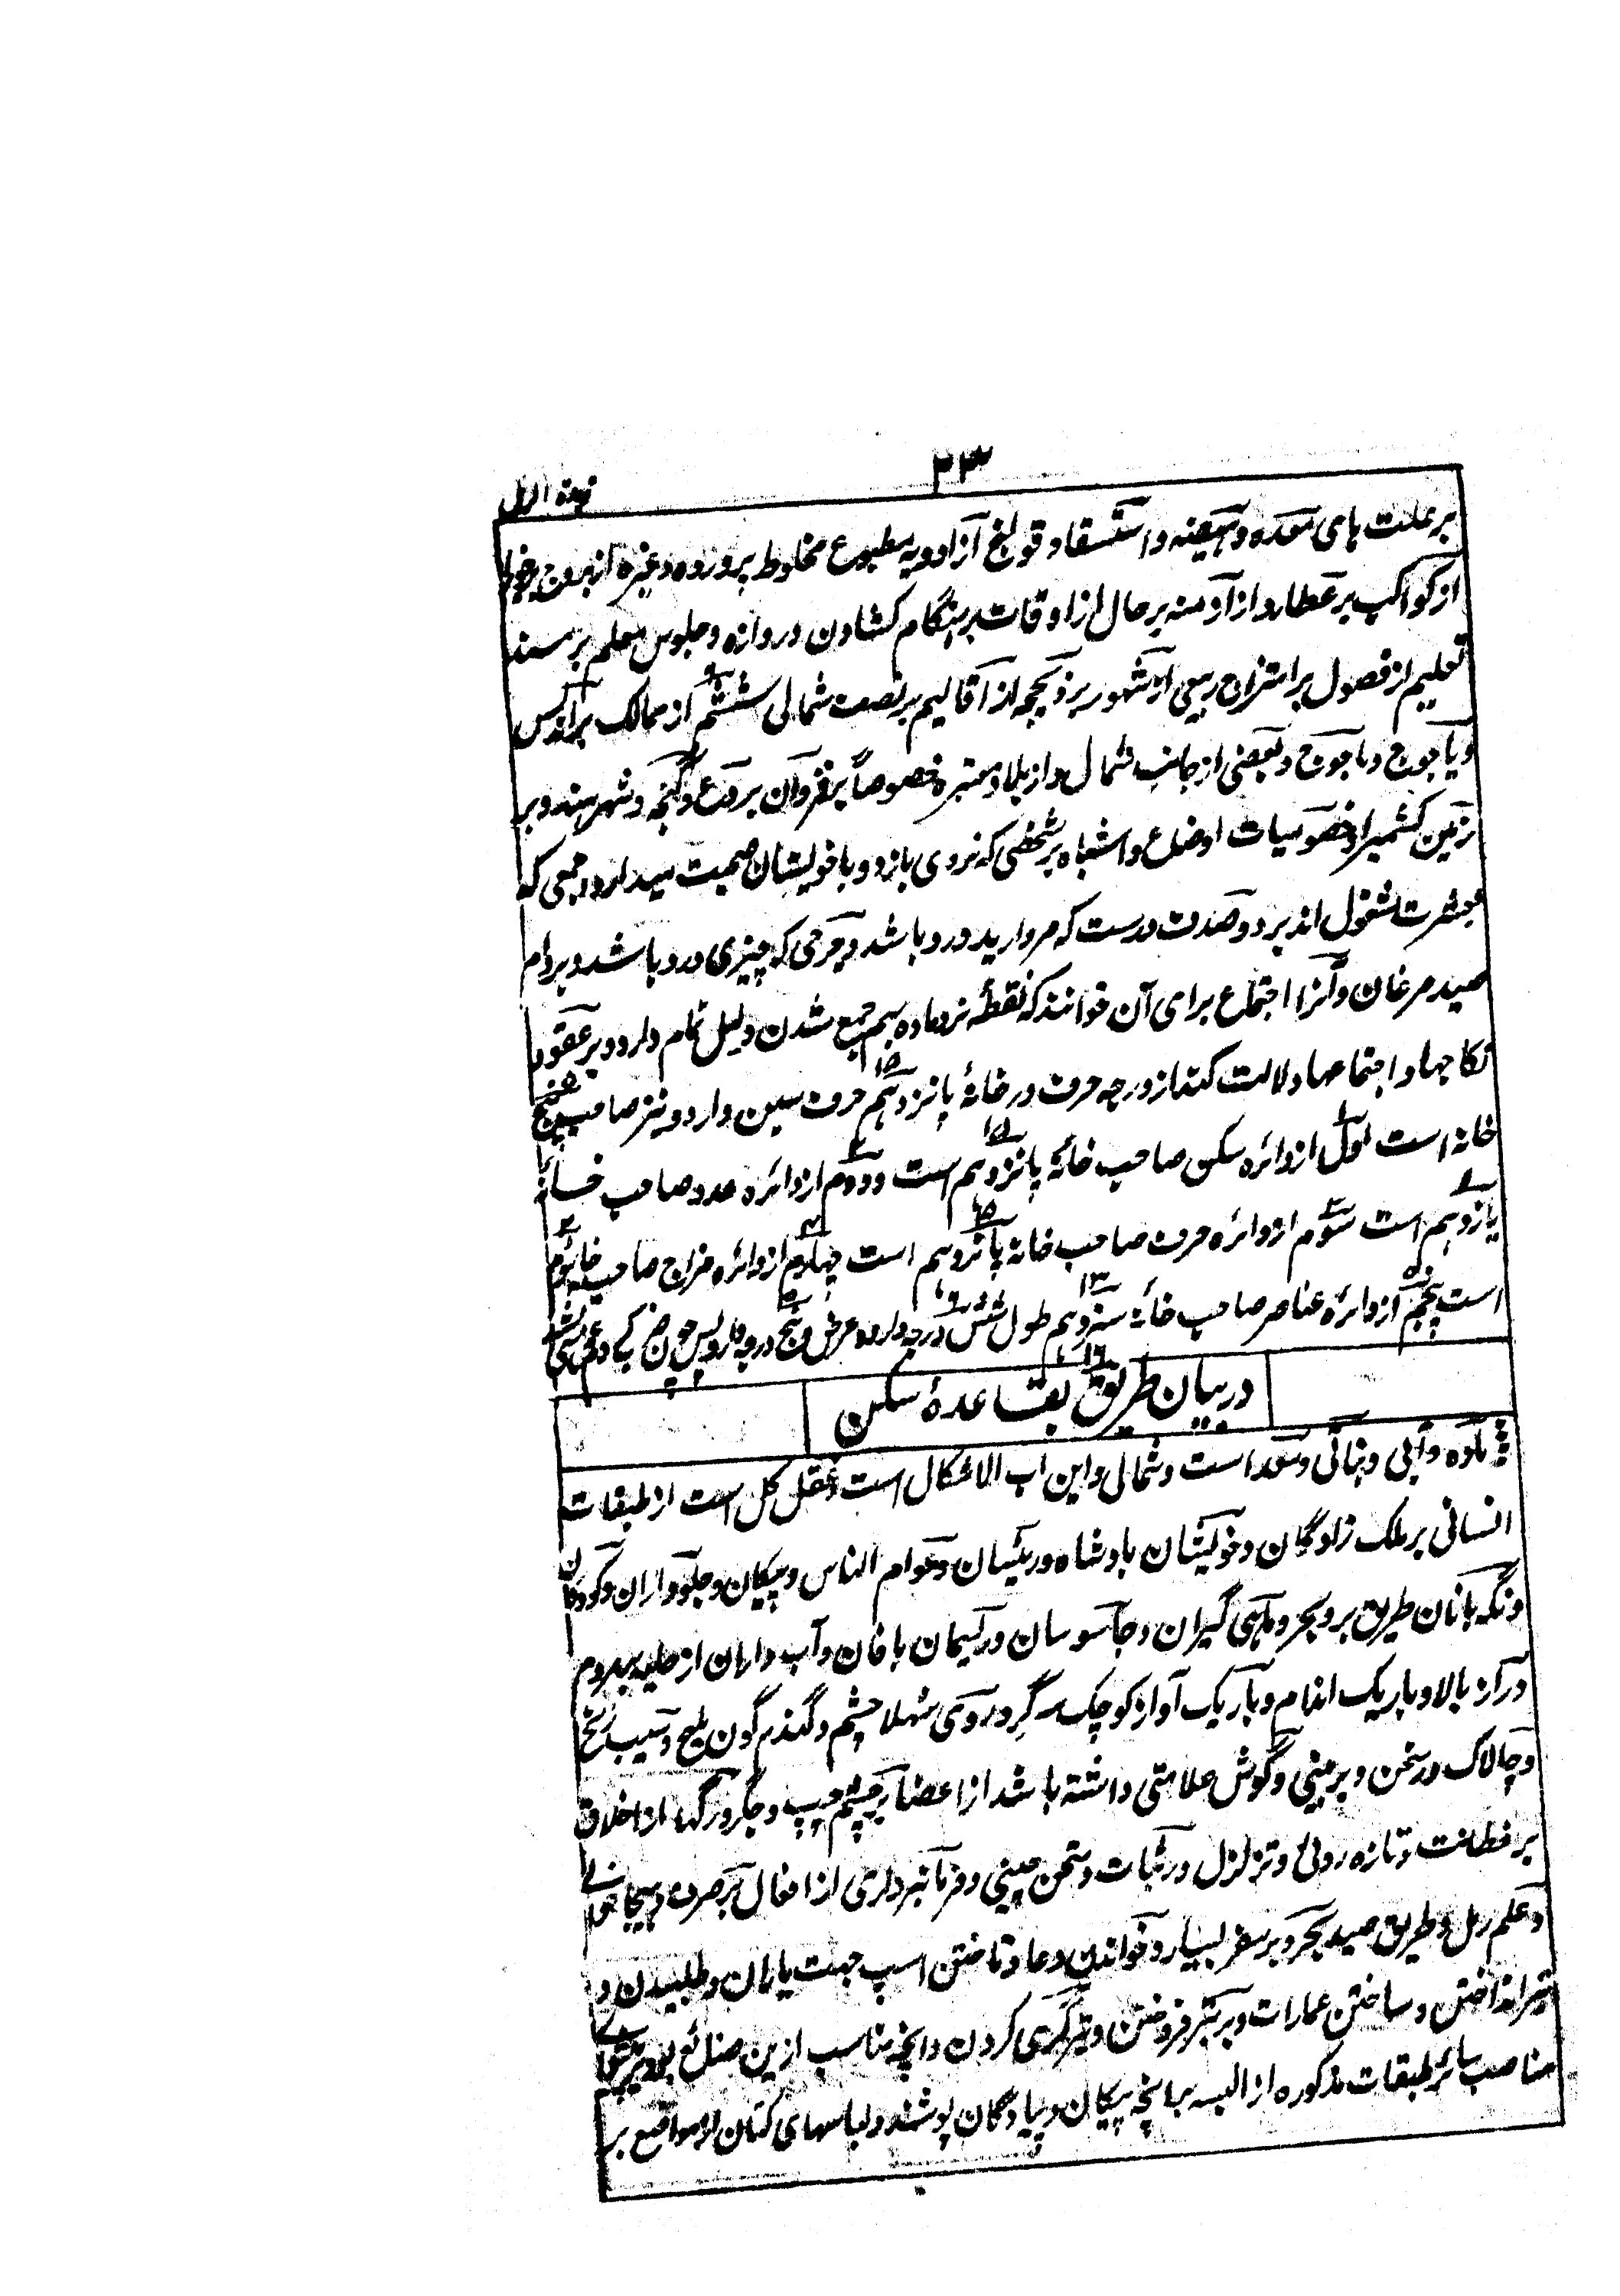 ۳۳
زبدة الرمل
بر علت های معده و هیضه و استسقا و قولنج از ادویه مطبوع مخلوط پرورده و غیره از بروج بر جوزا
از کواکب بر عطارد از آزمنه بر حال از اوقات بر هنگام کشادن دروازه و جلوس معلم بر مسند
تعلیم از فصول بر امتزاج ربیعی از شهور بر ذیحجه از اقالیم بر نصف شمالی ششم از ممالک بر اندلس
و یاجوج و ماجوج و بعضی از جانب شمال و از بلاد معتبره خصوصاً بر قزوآن بردع و گنجه و شهر هند و بر
زمین کشمیر از خصوصیات اوضاع و اشباه بر شخصی که نزدی بازد و با خویشان صحبت میدارد و جمعی که
بعشرت مشغول اند بر دو صدف درست که مروارید درو باشد و بر حی که چیزی درو باشد و بر دام
صید مرغان و آنرا اجتماع برای آن خوانند که نقطه نر و ماده بهم جمع شدن دلیل تمام دارد و بر عقود
نکاحها و اجتماعها دلالت کند از درجه حرف در خانهٔ پانزدهم حرف سین دارد و نیز صاحب پنج
خانه است اول از دائره سکن صاحب خانهٔ پانزدهم است و دوم از دائره عدد صاحب خسانهٔ
یازدهم است سوم از دائره حرف صاحب خانه پانزدهم است چهارم از دائره مزاج صاحب خانه دوم
است پنجم از دائره عناصر صاحب خانهٔ سیزدهم طول شش درجه دارد و عرض پنج درجه دارد پس چون ضرب کنی
در بیان طریق بقاعدهٔ سکن
ماده و آبی و نباتی و سعد است و شمالی و این اب الاشکال است و عقل کل است از طبقات
انسانی بر ملک زادگان و خویشان بادشاه و رئیسان و عوام الناس و پیکان و جلوداران و کودکان
و نگهبانان طریق بر و بحر و ماهی گیران و جاسوسان و ریسمان بافان و آب داران از حلیه بر مردم
دراز بالا و باریک اندام و باریک آواز کوچک سر گرد روی شهلا چشم و گندم گون ملیح و سیب زنخ
و چالاک در سخن و بر بینی و گوش علامتی داشته باشد از اعضا بر چشم چپ و جگر و رگها از اخلاق
بر فطانت و تازه روئی و تزلزل در ثبات و سخن چینی و فرمانبرداری از افعال بر صرف و هیجا
و علم رمل و طریق صید بحر و بر سفر بسیار و خواندن دعا و تاختن اسپ جهت یاران و طلبیدن و
تیر انداختن و ساختن عمارات و بر تبر فروختن و تیرگری کردن و آنچه مناسب ازین صنائع بود
مناصب سائر طبقات مذکوره از البسه بر آنچه پیکان و پیادگان پوشند و لباسهای کتان از مواضع بر